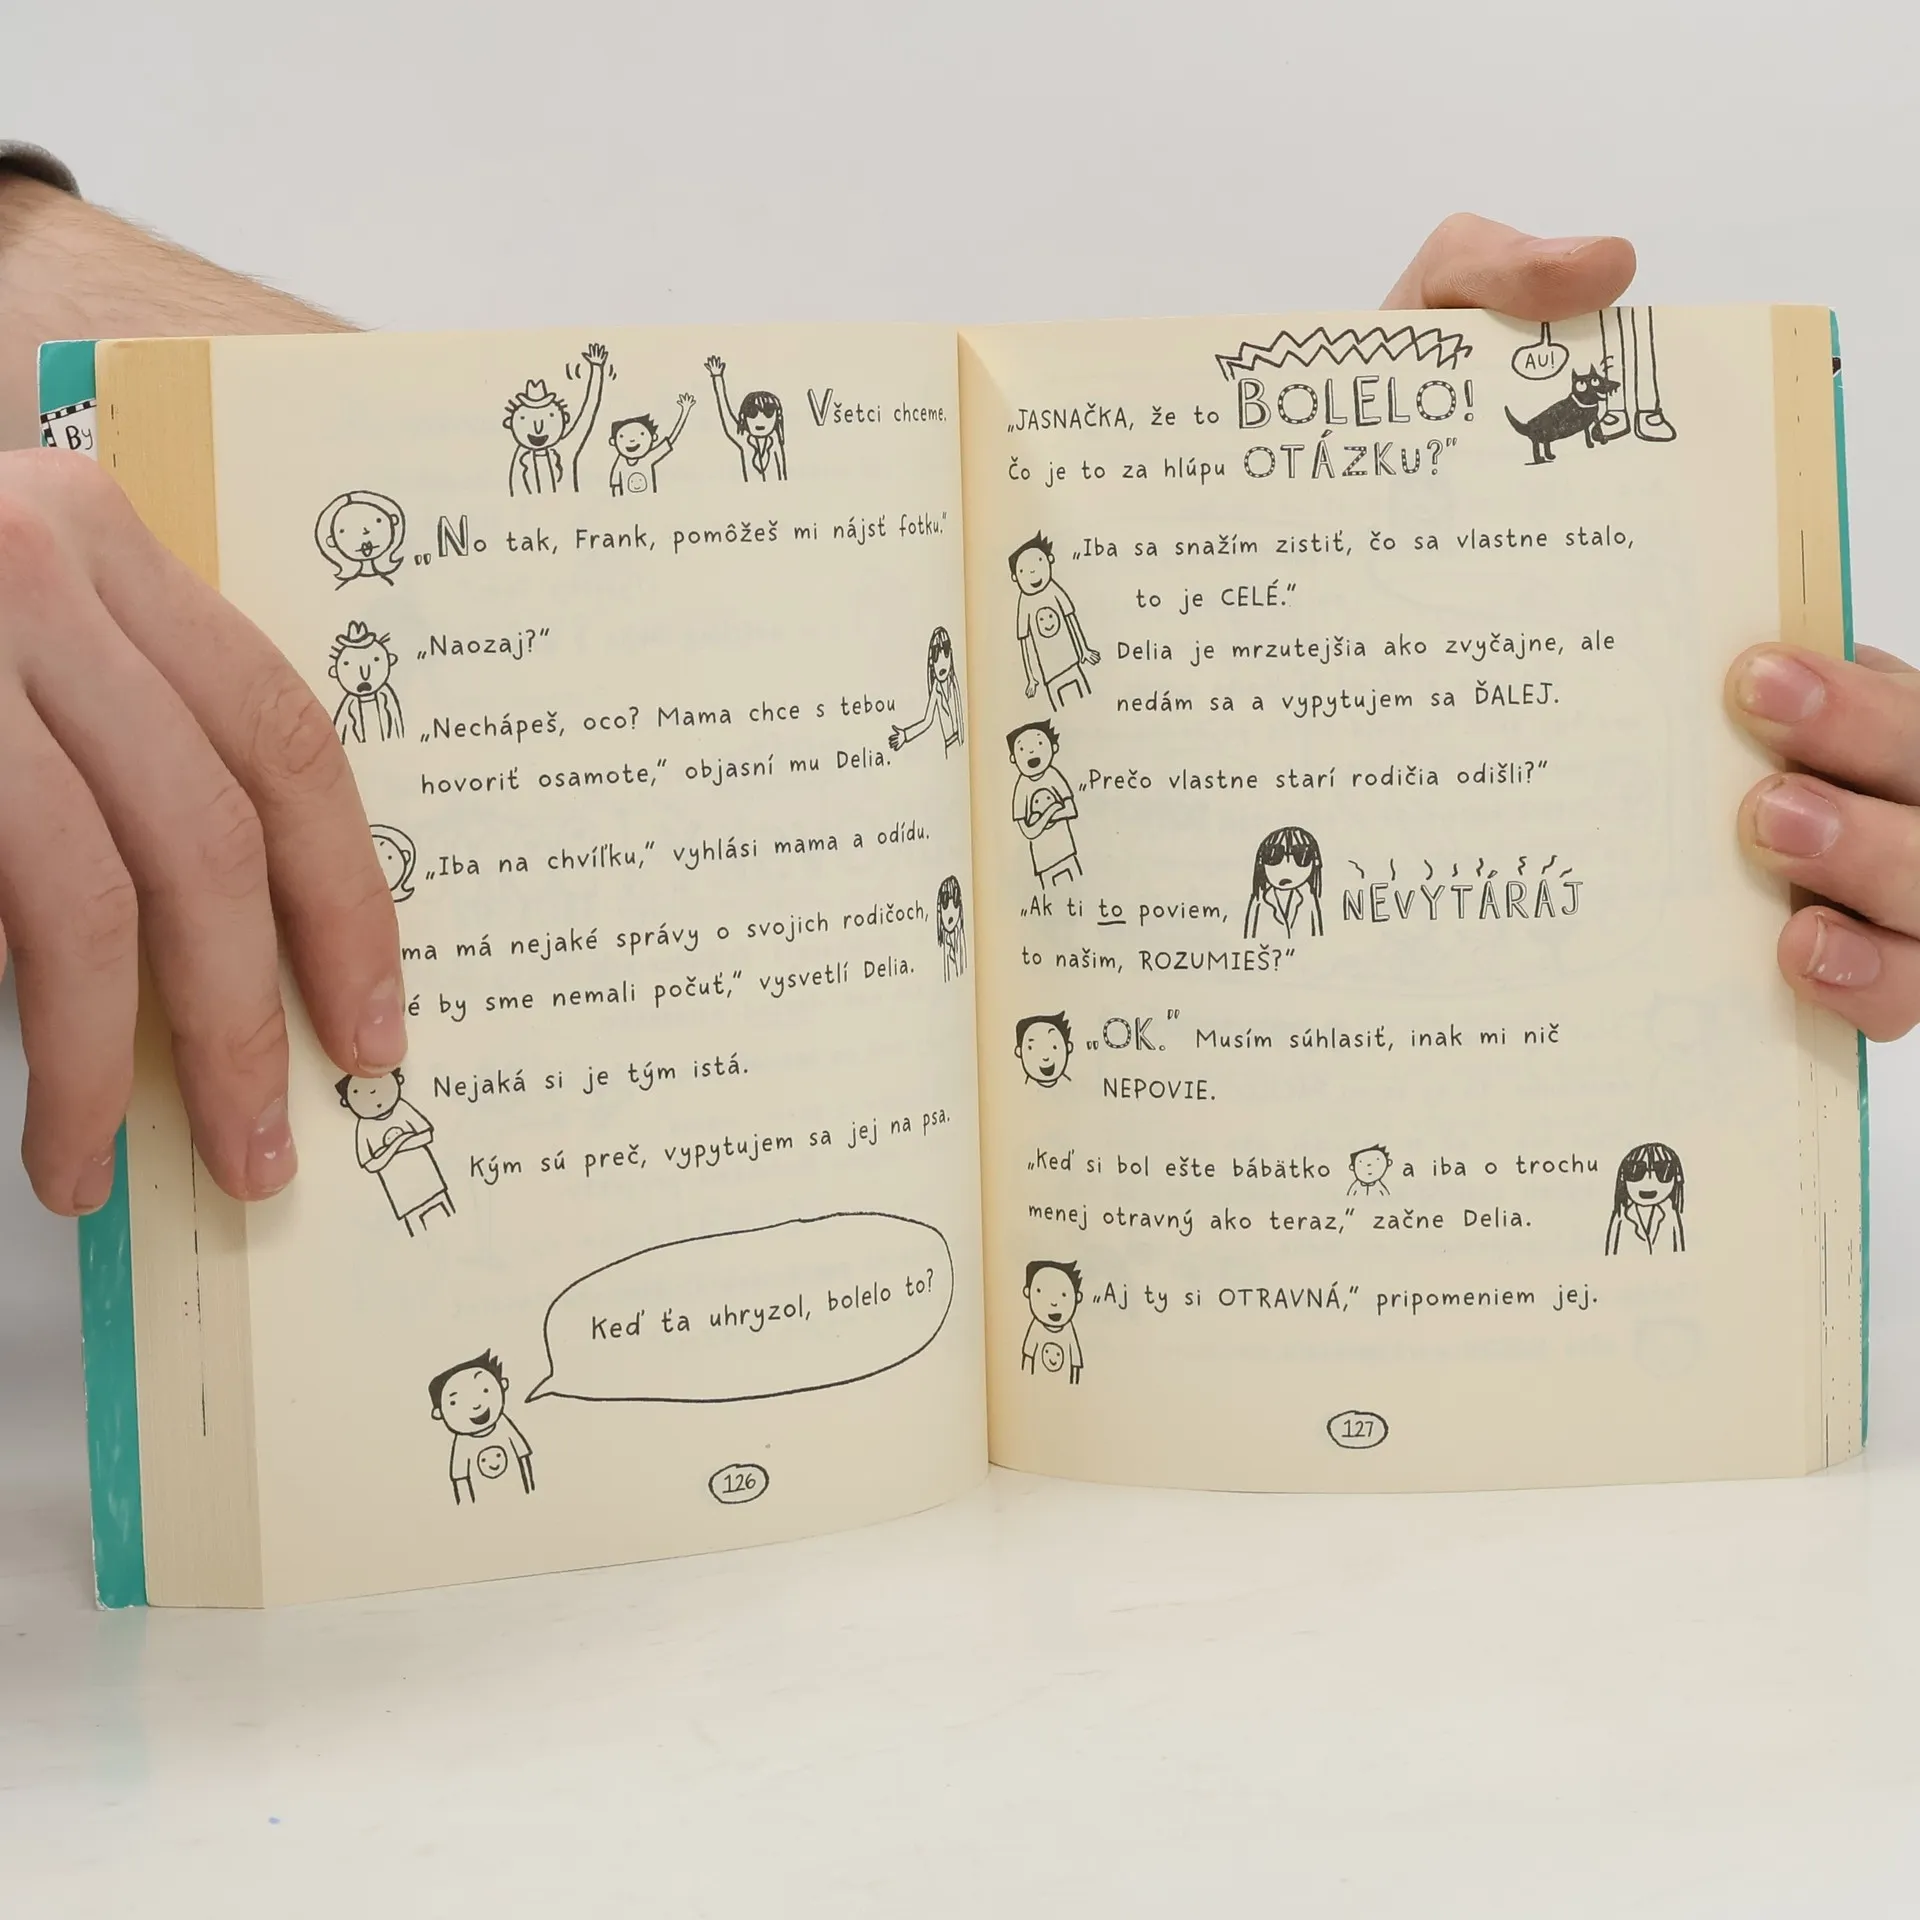 By
Všetci chceme.
„No tak, Frank, pomôžeš mi nájsť fotku.“
„Naozaj?“
„Nechápeš, oco? Mama chce s tebou
hovoriť osamote,“ objasní mu Delia.
„Iba na chvíľku,“ vyhlási mama a odídu.
ma má nejaké správy o svojich rodičoch,
é by sme nemali počuť,“ vysvetlí Delia.
Nejaká si je tým istá.
Kým sú preč, vypytujem sa jej na psa.
Keď ťa uhryzol, bolelo to?
126
AU!
„JASNAČKA, že to BOLELO!
čo je to za hlúpu OTÁZKU?“
„Iba sa snažím zistiť, čo sa vlastne stalo,
to je CELÉ.“
Delia je mrzutejšia ako zvyčajne, ale
nedám sa a vypytujem sa ĎALEJ.
„Prečo vlastne starí rodičia odišli?“
„Ak ti to poviem, NEVYTÁRAJ
to našim, ROZUMIEŠ?“
„OK.“ Musím súhlasiť, inak mi nič
NEPOVIE.
„Keď si bol ešte bábätko a iba o trochu
menej otravný ako teraz,“ začne Delia.
„Aj ty si OTRAVNÁ,“ pripomeniem jej.
127